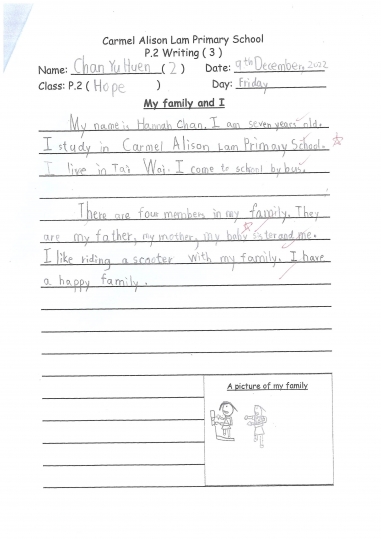 Carmel Alison Lam Primary School
P.2 Writing ( 3 )
Name: Chan Yu Huen ( 2 ) Date: 9th December, 2022
Class: P.2 ( Hope ) Day: Friday
My family and I
My name is Hannah Chan. I am seven years old.
I study in Carmel Alison Lam Primary School.
I live in Tai Wai. I come to school by bus.
There are four members in my family. They
are my father, my mother, my baby sister and me.
I like riding a scooter with my family. I have
a happy family.
A picture of my family